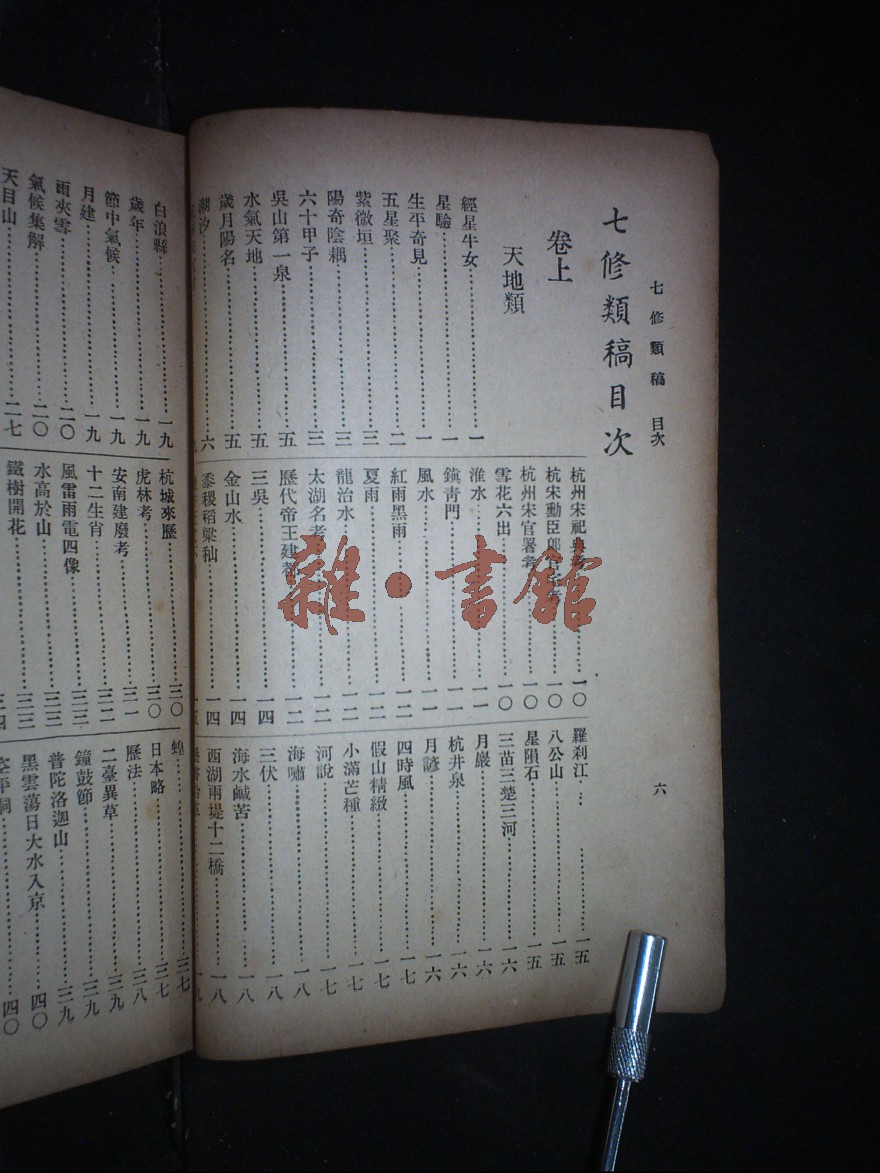 七修類稿 目次
六
七修類稿目次
卷上
天地類
經星牛女一
星驗一
生平奇見一
五星聚二
紫微垣三
陽奇陰耦三
六十甲子三
吳山第一泉五
水氣天地五
歲月陽名五
潮汐六
杭州宋祀典考一〇
杭宋勳臣郎一〇
杭州宋官署考一〇
雪花六出一〇
淮水一一
鎮青門一一
風水一一
紅雨黑雨一二
夏雨一二
龍治水一二
太湖名考一二
歷代帝王建都一二
三吳一四
金山水一四
黍稷稻粱秈一四
一五
羅刹江一五
八公山一五
星隕石一五
三苗三楚三河一六
月巖一六
杭井泉一六
月諺一六
四時風一七
假山精緻一七
小滿芒種一七
河說一七
海嘯一八
三伏一八
海水鹹苦一八
西湖兩堤十二橋一八
一九
白浪縣一九
歲年一九
月建一九
節中氣候一九
雨夾雪二〇
氣候集解二〇
天目山二七
杭城來歷三〇
虎林考三〇
安南建廢考三一
十二生肖三二
風雷雨電四像三三
水高於山三三
鐵樹開花三三
三四
蝗三七
日本略三七
歷法三八
二臺異草三九
鐘鼓節三九
普陀洛迦山三九
黑雲蕩日大水入京四〇
四〇
雜·書館